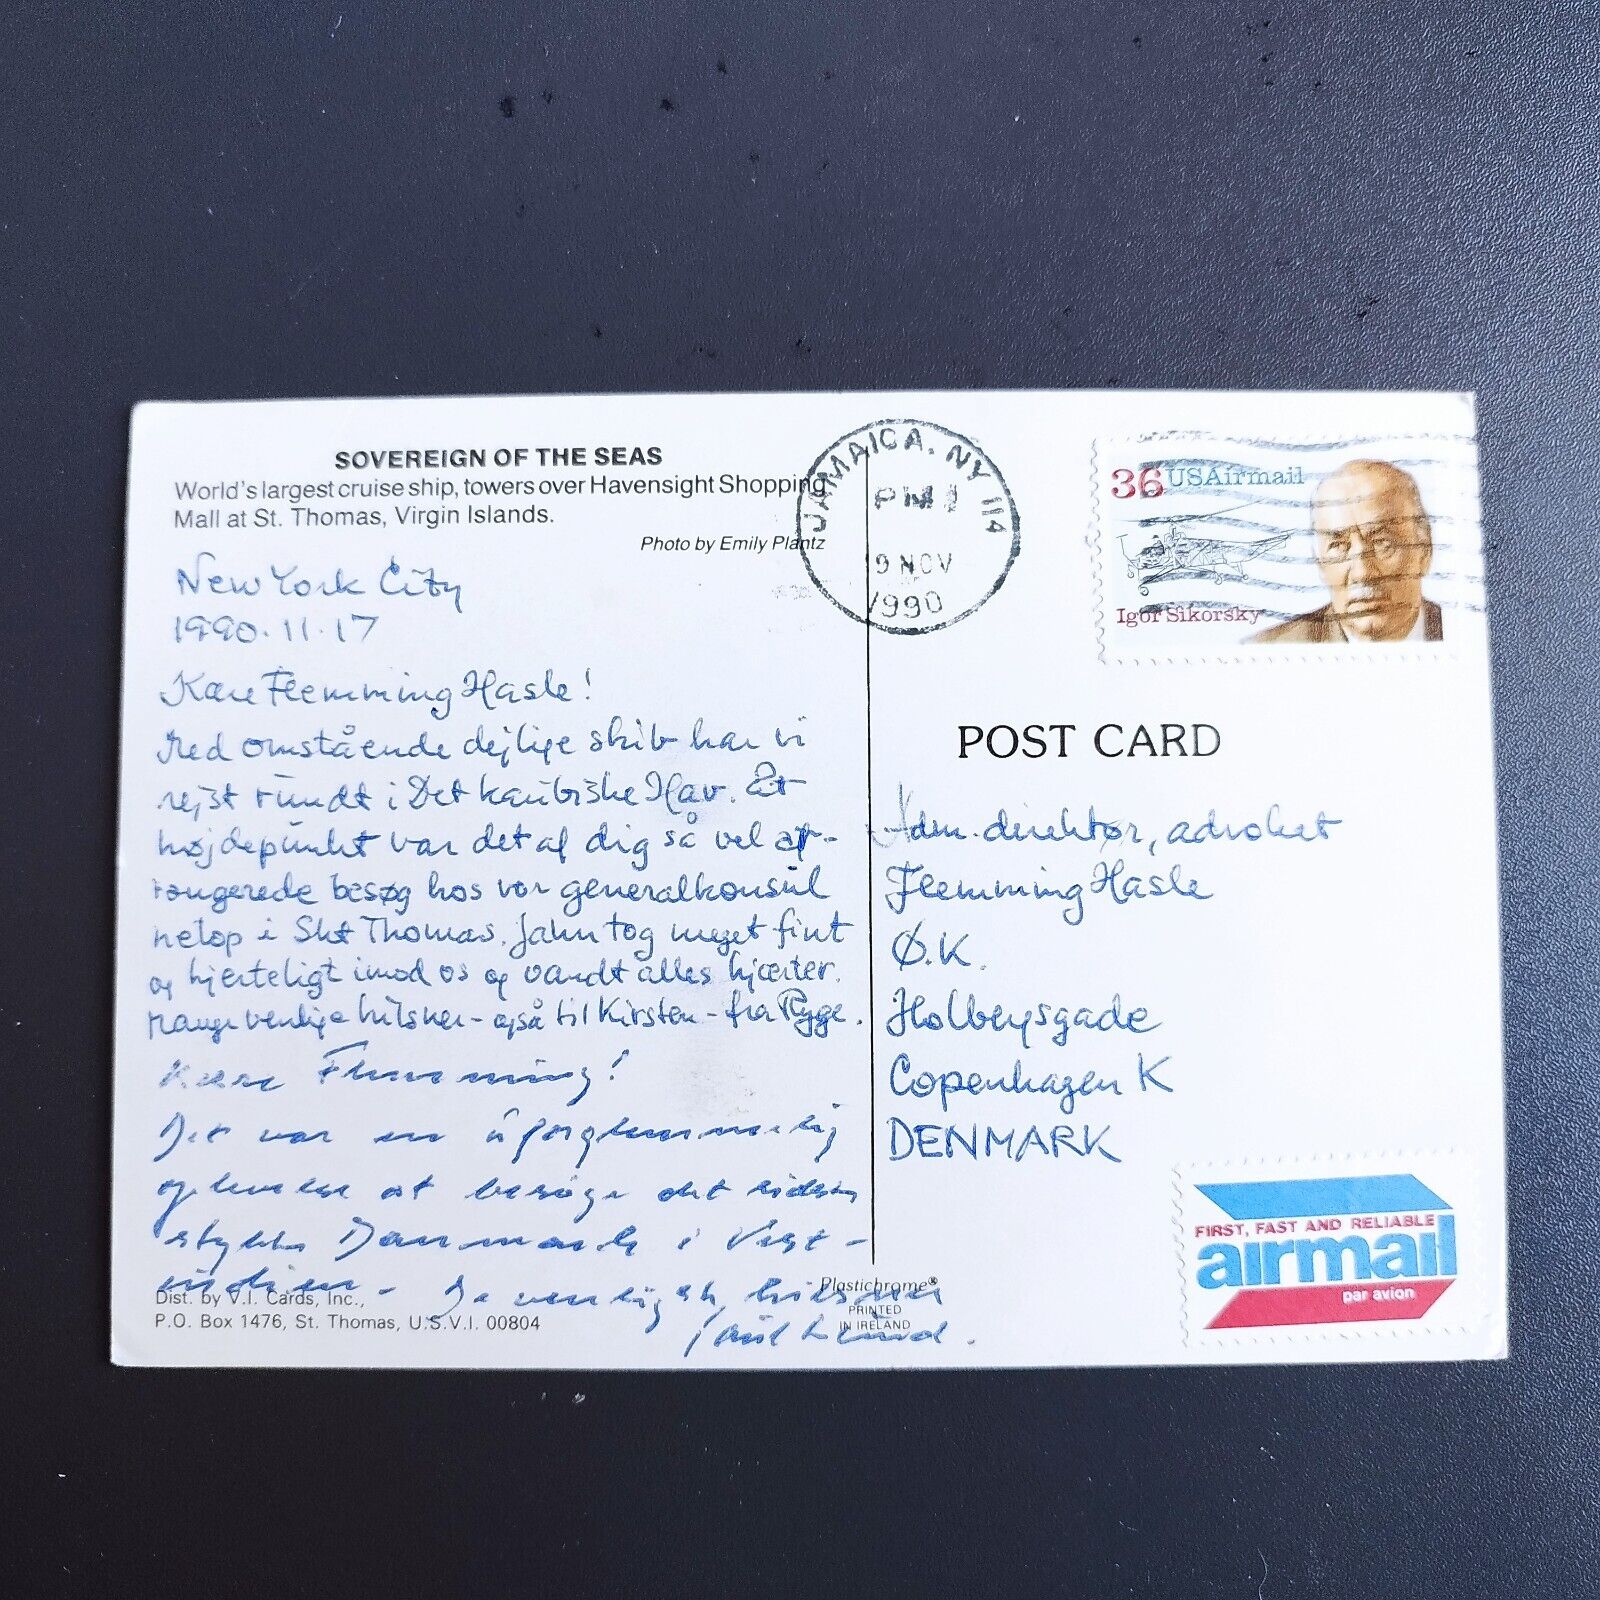 SOVEREIGN OF THE SEAS
World's largest cruise ship, towers over Havensight Shopping
Mall at St. Thomas, Virgin Islands.
Photo by Emily Plantz
New York City
1990.11.17
Kære Flemming Hasle!
Med omstående dejlige skib har vi
rejst rundt i Det karibiske Hav. Et
højdepunkt var det af dig så vel ar-
rangerede besøg hos vor generalkonsul
netop i Skt Thomas. Jahn tog meget fint
og hjerteligt imod os og vandt alles hjærter.
Mange venlige hilsner - også til Kirsten - fra Rygge.
Kære Flemming!
Det var en uforglemmelig
oplevelse at besøge det sidste
stykke Danmark i Vest-
indien - De venligste hilsner
Dist. by V.I. Cards, Inc.,
P.O. Box 1476, St. Thomas, U.S.V.I. 00804
Plastichrome®
PRINTED
IN IRELAND
JAMAICA, NY 114
PM
NOV
1990
36 USAirmail
Igor Sikorsky
POST CARD
Adm. direktør, advokat
Flemming Hasle
Ø.K.
Holbergsgade
Copenhagen K
DENMARK
FIRST, FAST AND RELIABLE
airmail
par avion